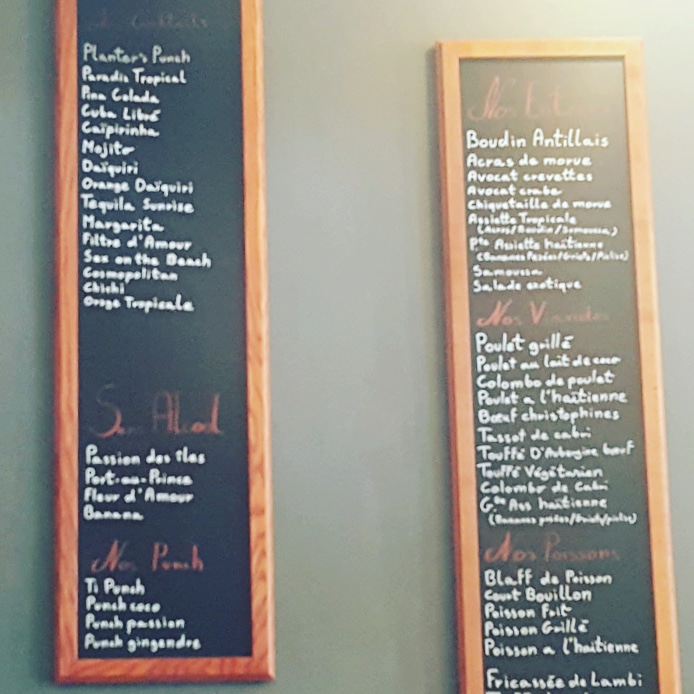 Cocktails
Planter's Punch
Paradis Tropical
Pina Colada
Cuba Libré
Caïpirinha
Mojito
Daïquiri
Orange Daïquiri
Tequila Sunrise
Margarita
Filtre d'Amour
Sex on the Beach
Cosmopolitan
Chichi
Orage Tropicale
Sans Alcool
Passion des îles
Port-au-Prince
Fleur d'Amour
Banana
Nos Punch
Ti Punch
Punch coco
Punch passion
Punch gingendre
Nos
Boudin Antillais
Acras de morue
Avocat crevettes
Avocat crabe
Chiquetaille de morue
Assiette Tropicale
(Acras/Boudin/Samoussa)
Pte Assiette haïtienne
(Bananes Pesées/Griots/Piklise)
Samoussa
Salade exotique
Nos Viandes
Poulet grillé
Poulet au lait de coco
Colombo de poulet
Poulet a l'haïtienne
Bœuf christophines
Tassot de cabri
Touffé D'Aubergine bœuf
Touffé Végétarien
Colombo de Cabri
Gde Ass haïtienne
(Bananes pesées/Griots/piklise)
Nos Poissons
Blaff de Poisson
Court Bouillon
Poisson Frit
Poisson Grillé
Poisson a l'haïtienne
Fricassée de Lambi